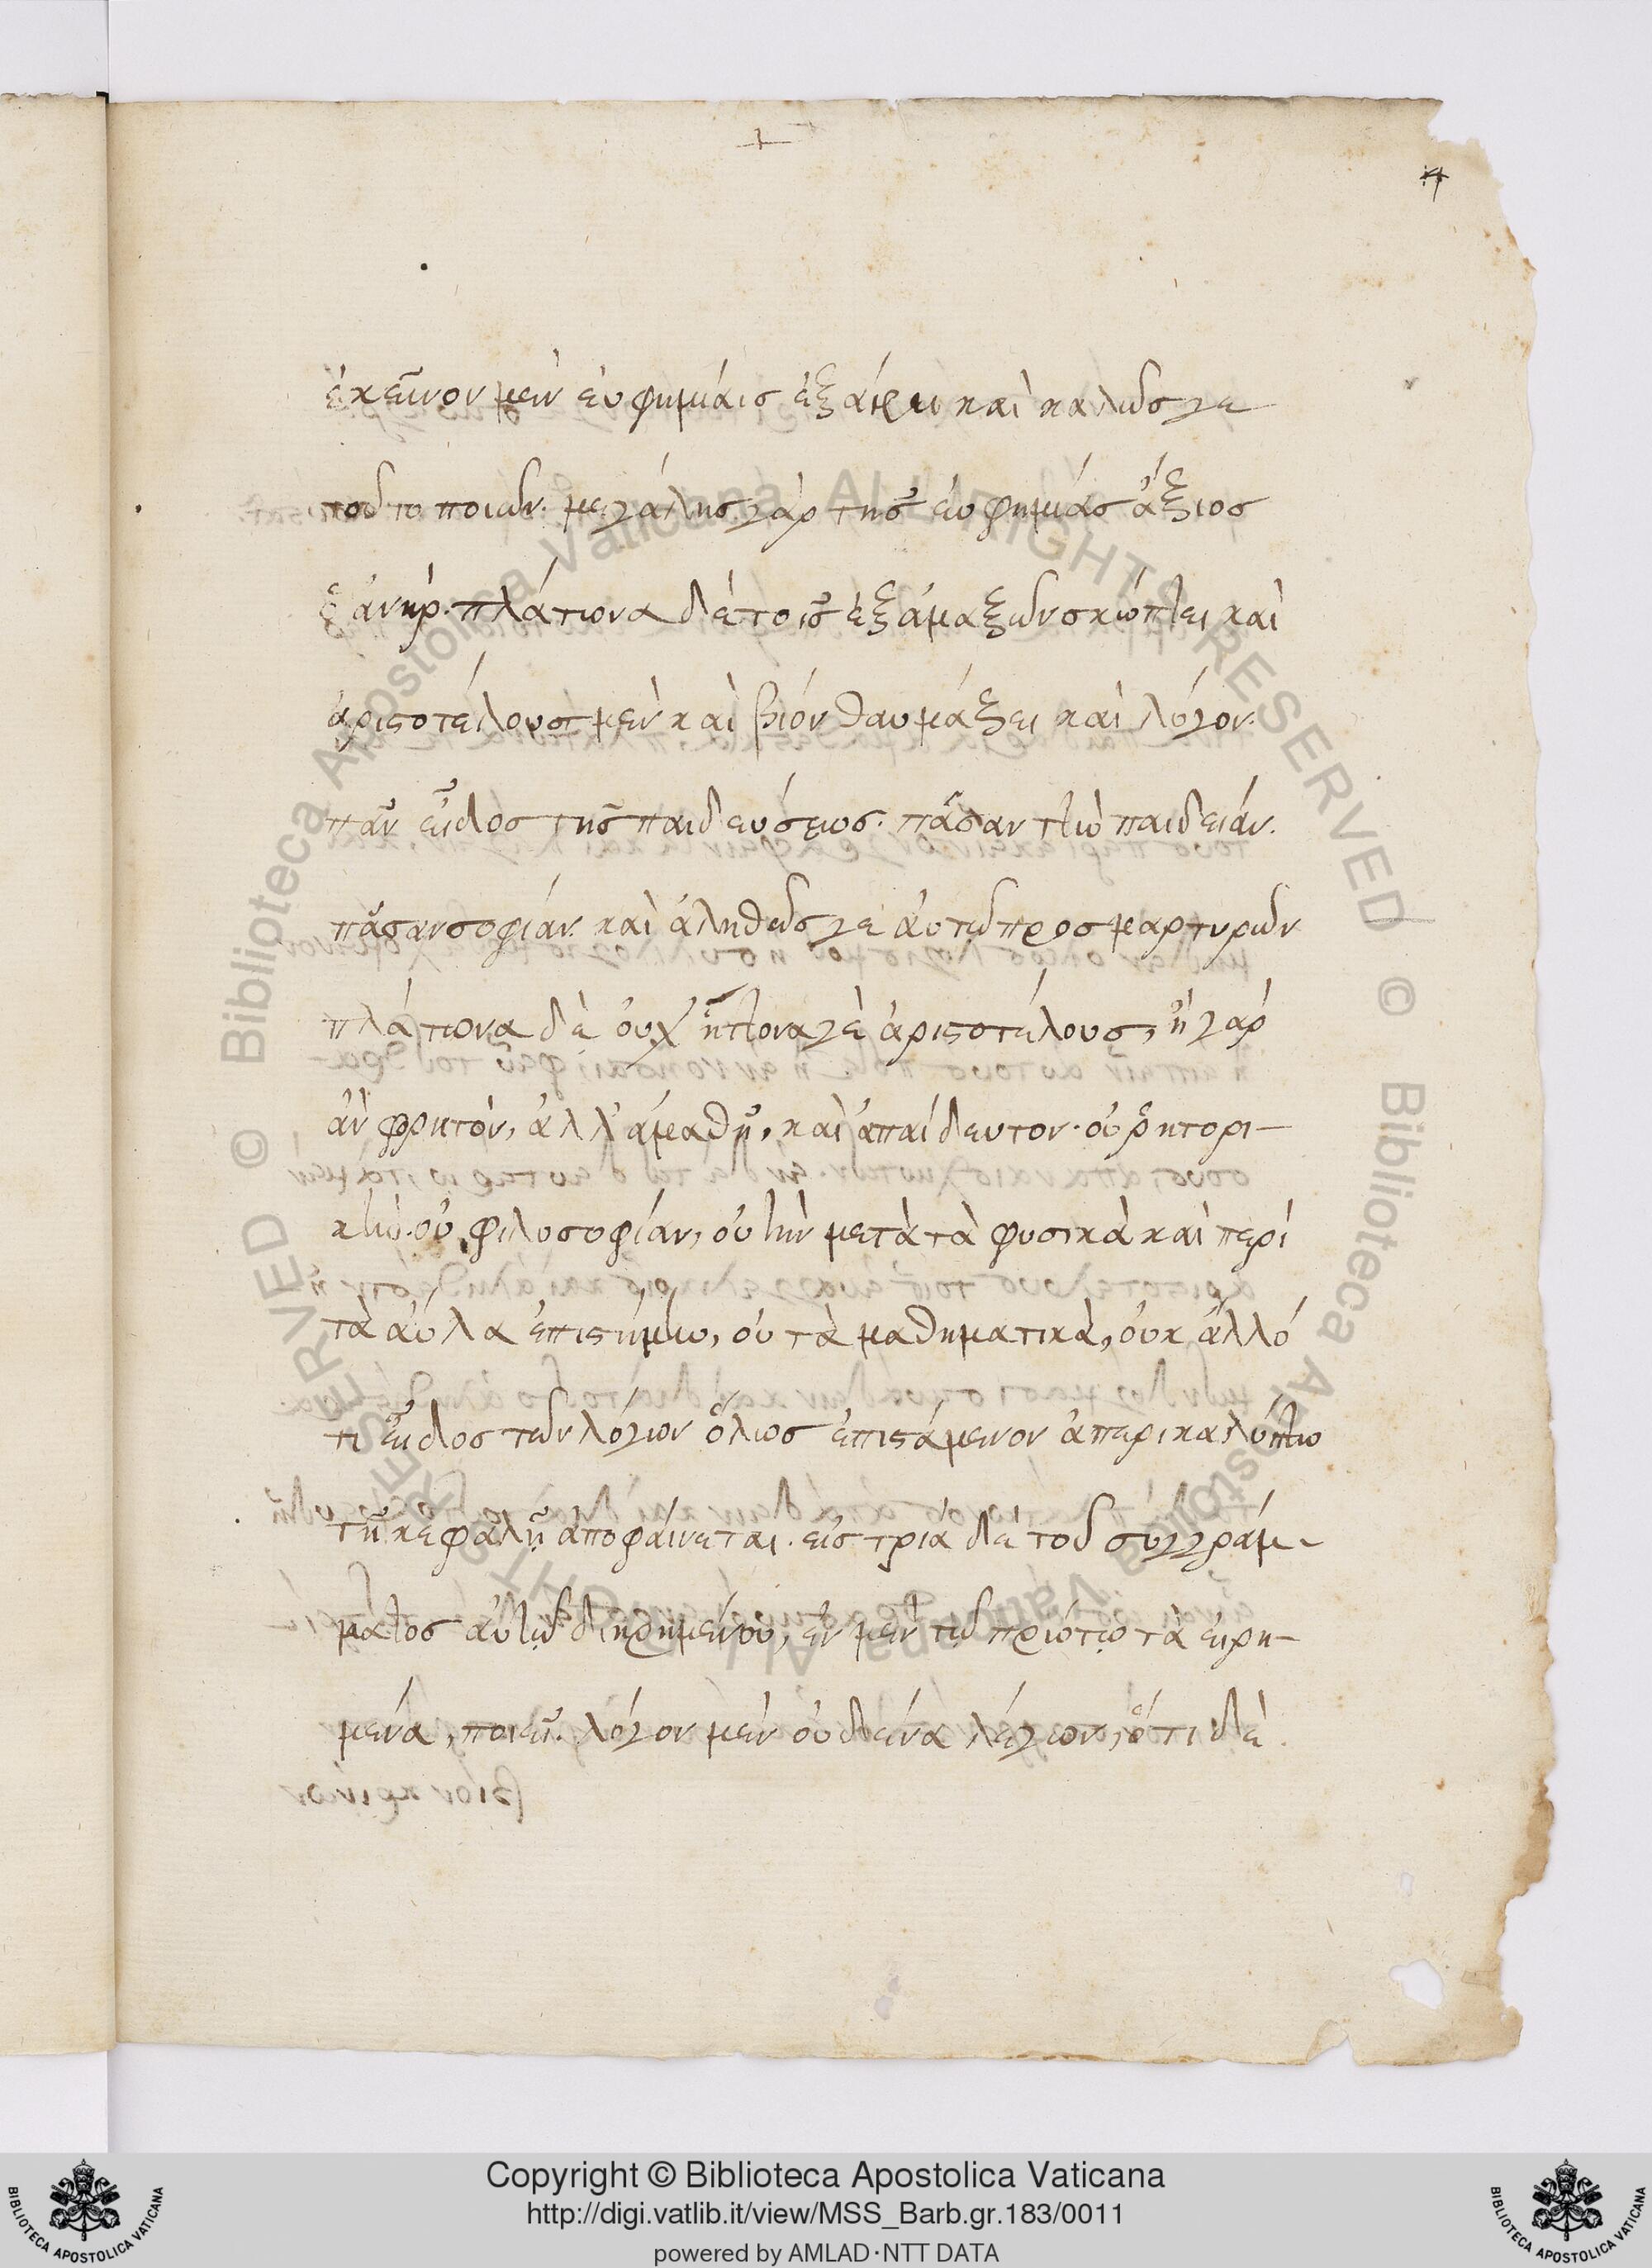 4
ἐκεῖνον μὲν εὐφημίαις ἐξαίρει καὶ καλῶς γε
τοῦτο ποιῶν· μεγάλης γὰρ τῆς εὐφημίας ἄξιος
ὁ ἀνήρ· πλάτωνα δὲ τοῖς ἐξ ἁμαξῶν σκώπτει καὶ
ἀριστοτέλους μὲν καὶ βίον θαυμάζει καὶ λόγον·
πᾶν εἶδος τῆς παιδεύσεως· πᾶσαν τὴν παιδείαν·
πᾶσαν σοφίαν· καὶ ἀληθῶς γε αὐτῷ προσμαρτυρῶν
πλάτωνα δὲ οὐχ ἥττονα γε ἀριστοτέλους, ἦ γὰρ
ἂν φορητὸν, ἀλλ' ἀμαθῆ, καὶ ἀπαίδευτον· οὐ ῥητορι-
κὴν· οὐ φιλοσοφίαν, οὐ τὴν μετὰ τὰ φυσικὰ καὶ περὶ
τὰ ἄϋλα ἐπιστήμην, οὐ τὰ μαθηματικὰ, οὐκ ἄλλό
τι εἶδος τῶν λόγων ὅλως ἐπιστάμενον ἀπερικαλύπτω
τῇ κεφαλῇ ἀποφαίνεται· εἰς τρία δὲ τοῦ συγγράμ-
ματος αὐτῷ διῃρημένου, ἐν μὲν τῷ πρώτῳ τὰ εἰρη-
μένα, ποιεῖ· λόγον μὲν οὐδένα λέγων, ὅτι δὲ
Copyright © Biblioteca Apostolica Vaticana
http://digi.vatlib.it/view/MSS_Barb.gr.183/0011
powered by AMLAD·NTT DATA
BIBLIOTECA APOSTOLICA VATICANA
BIBLIOTECA APOSTOLICA VATICANA
© Biblioteca Apostolica Vaticana ALL RIGHTS RESERVED © Biblioteca Apostolica Vaticana ALL RIGHTS RESERVED